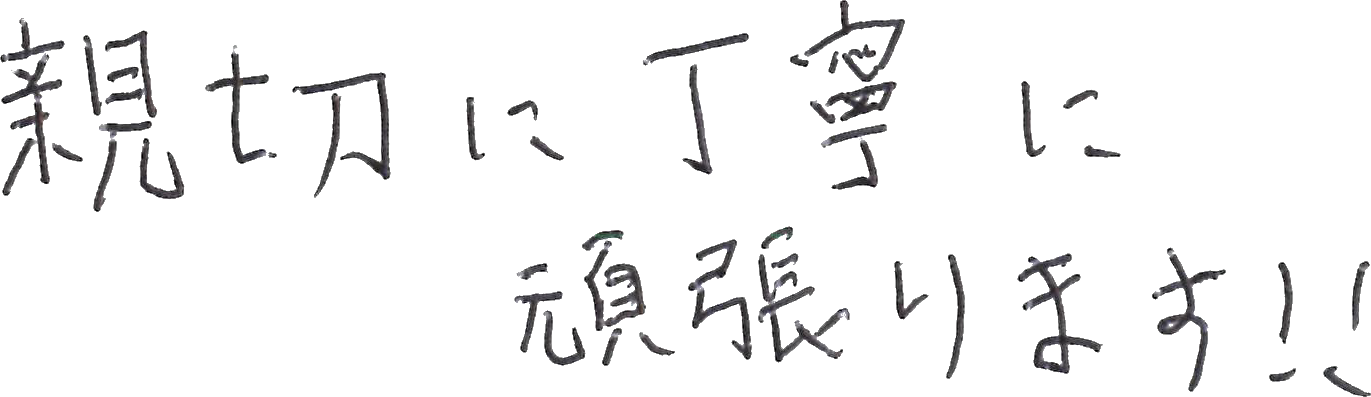 親切に丁寧に
頑張ります!!